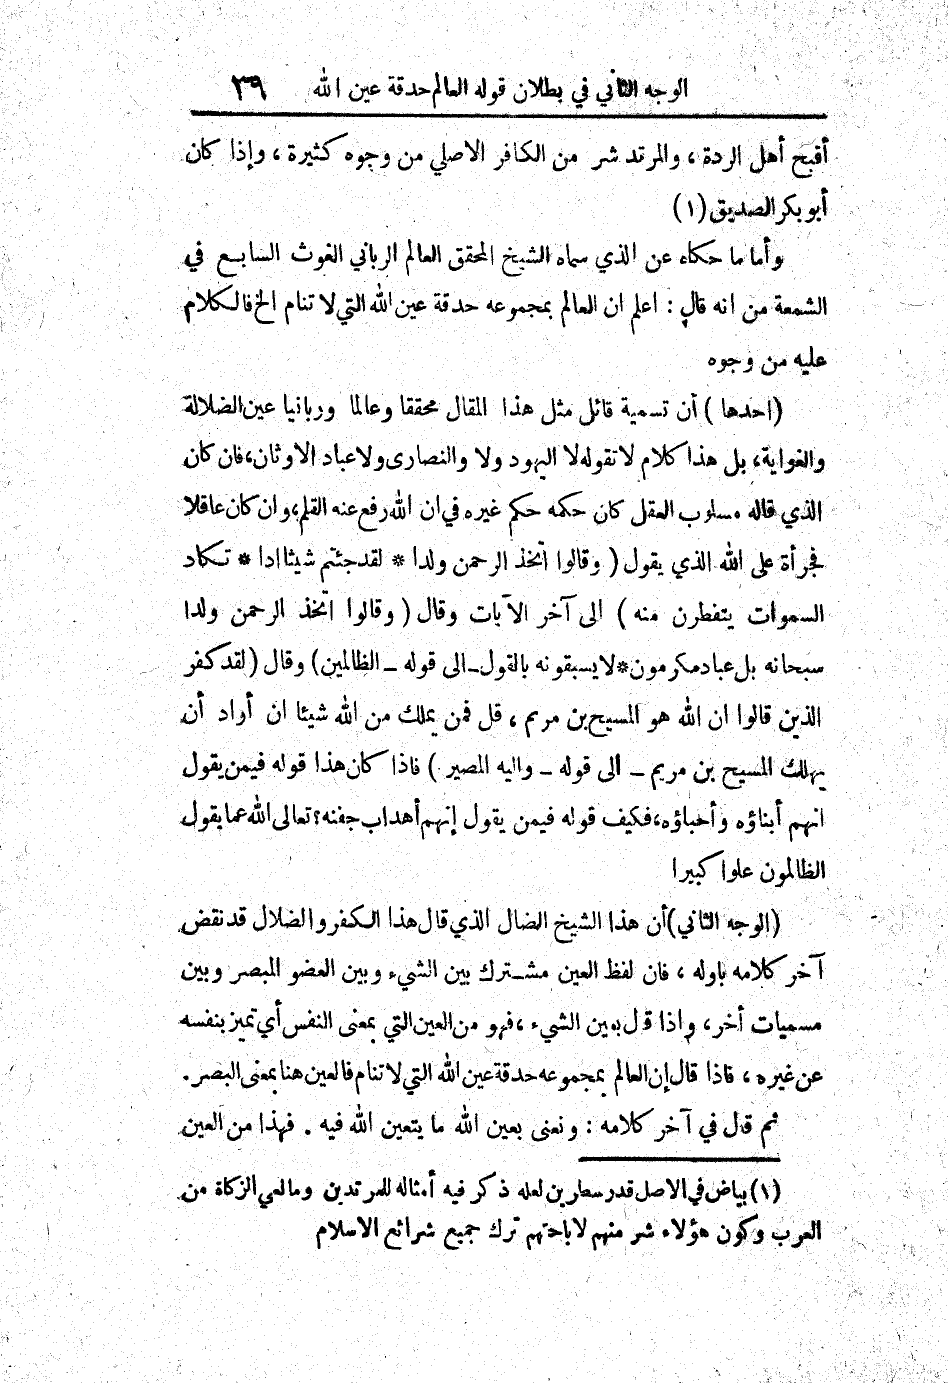 الوجه الثاني في بطلان قوله العالم حدقة عين الله ٣٩
أقبح أهل الردة ، والمرتد شر من الكافر الاصلي من وجوه كثيرة ، وإذا كان
أبو بكر الصديق (١)
وأما ما حكاه عن الذي سماه الشيخ المحقق العالم الرباني الغوث السابع في
الشمعة من انه قال : اعلم ان العالم بمجموعه حدقة عين الله التي لا تنام الخ فالكلام
عليه من وجوه
(احدها) أن تسمية قائل مثل هذا المقال محققا وعالما وربانيا عين الضلالة
والغواية، بل هذا كلام لا تقوله لا اليهود ولا والنصارى ولا عباد الاوثان، فان كان
الذي قاله مسلوب العقل كان حكمه حكم غيره في ان الله رفع عنه القلم، وان كان عاقلا
فجرأة على الله الذي يقول ( وقالوا اتخذ الرحمن ولدا * لقد جئتم شيئا ادا * تكاد
السموات يتفطرن منه ) الى آخر الآيات وقال ( وقالوا اتخذ الرحمن ولدا
سبحانه بل عباد مكرمون * لا يسبقونه بالقول ـ الى قوله ـ الظالمين) وقال (لقد كفر
الذين قالوا ان الله هو المسيح بن مريم ، قل فمن يملك من الله شيئا ان أراد أن
يهلك المسيح بن مريم ـ الى قوله ـ واليه المصير ) فاذا كان هذا قوله فيمن يقول
انهم أبناؤه وأحباؤه، فكيف قوله فيمن يقول إنهم أهداب جفنه؟ تعالى الله عما يقول
الظالمون علوا كبيرا
(الوجه الثاني) أن هذا الشيخ الضال الذي قال هذا الكفر والضلال قد نقض
آخر كلامه باوله ، فان لفظ العين مشترك بين الشيء وبين العضو المبصر وبين
مسميات أخر، واذا قال بعين الشيء ، فهو من العين التي بمعنى النفس أي تميز بنفسه
عن غيره ، فاذا قال إن العالم بمجموعه حدقة عين الله التي لا تنام فالعين هنا بمعنى البصر.
ثم قال في آخر كلامه : ونعنى بعين الله ما يتعين الله فيه . فهذا من العين
(١) بياض في الاصل قدر سطرين لعله ذكر فيه أمثاله للمرتدين ومانعي الزكاة من
العرب وكون هؤلاء شر منهم لاباحتهم ترك جميع شرائع الاسلام